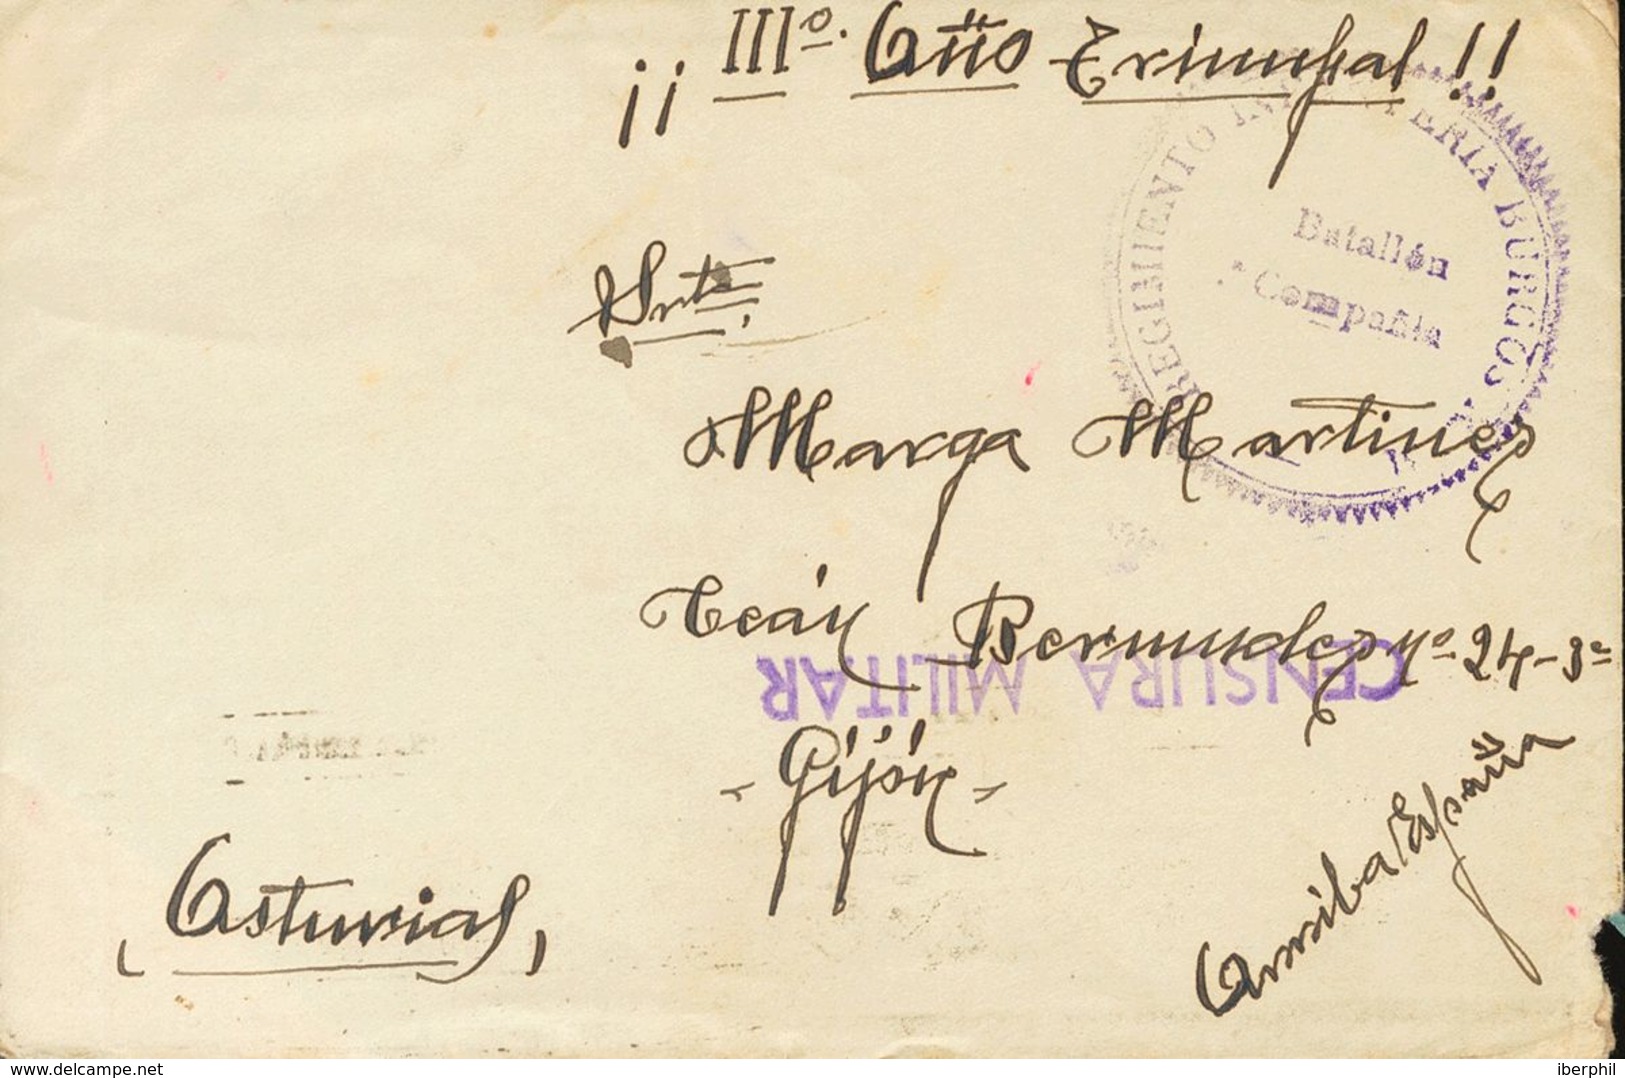 ¡¡ IIIº. Año Triunfal !!
REGIMIENTO INFANTERIA BURGOS
Batallón
Compañia
Srta.
Marga Martinez
Ceán Bermudez nº 24-3º
CENSURA MILITAR
- Gijón -
(Asturias)
Arriba España
www.delcampe.net
iberphil